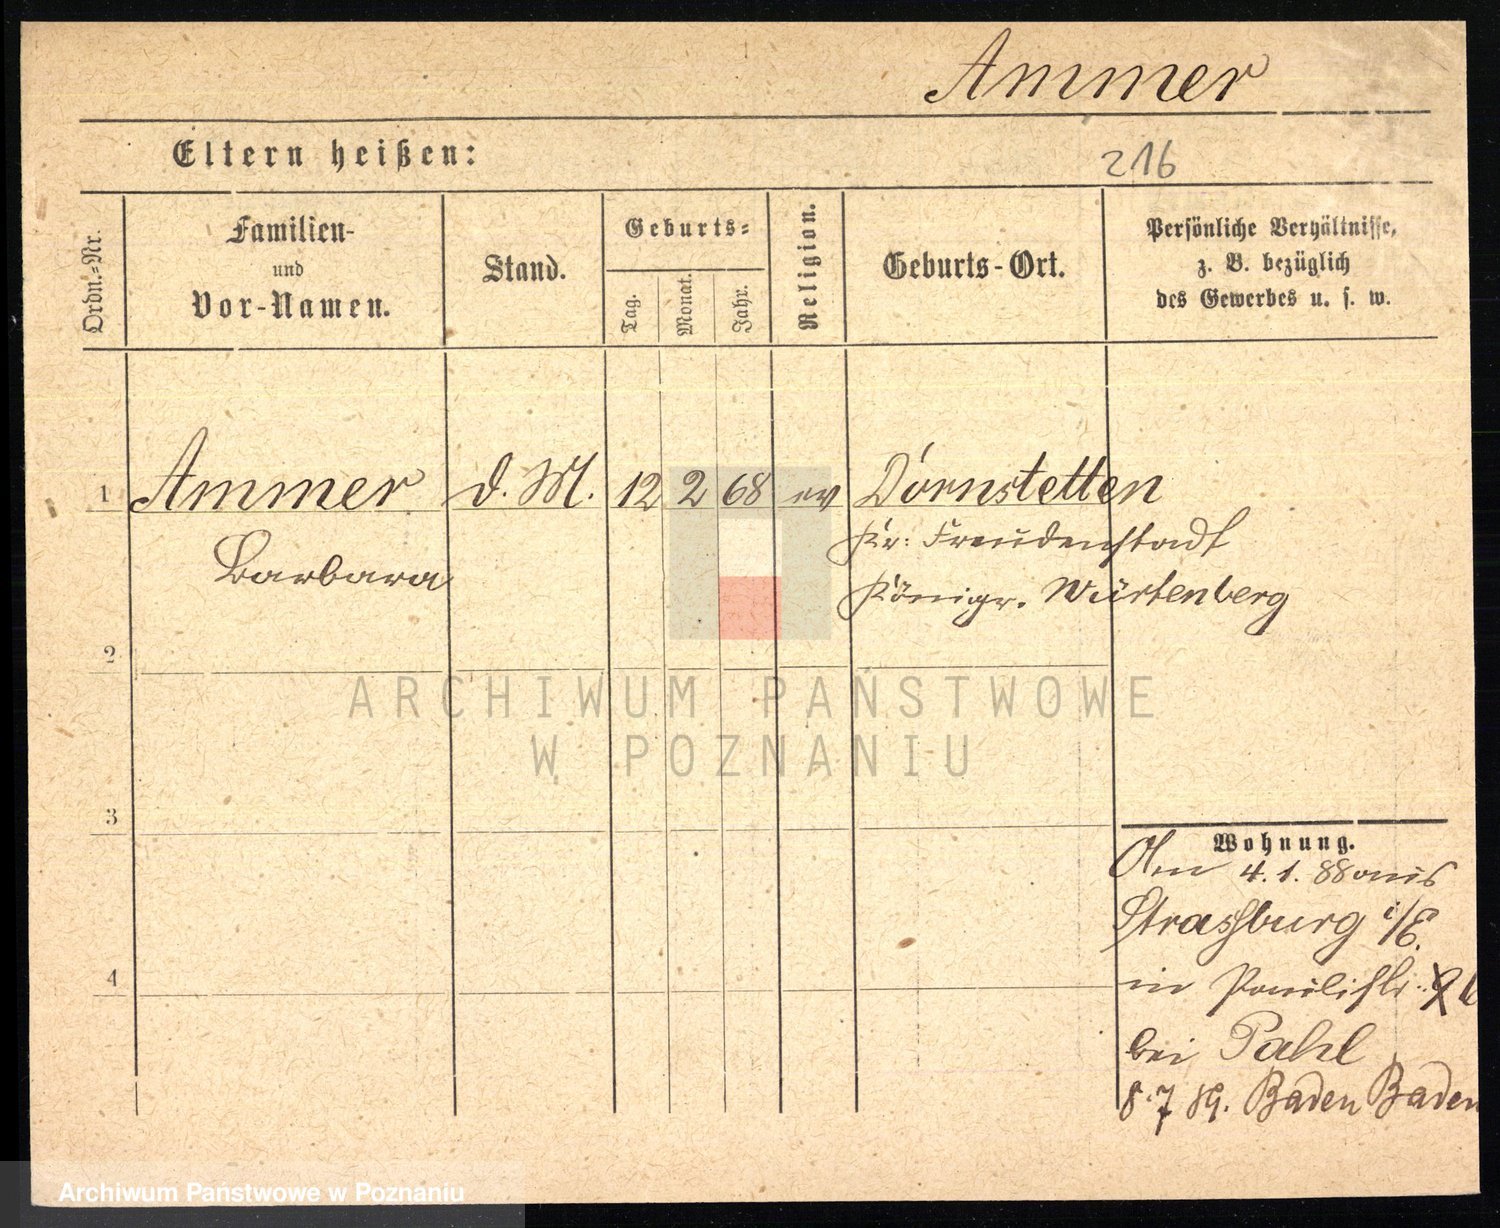 Ammer
Eltern heißen:
216
Ordn.-Nr.
Familien-
und
Vor-Namen.
Stand.
Geburts-
Tag.
Monat.
Jahr.
Religion.
Geburts-Ort.
Persönliche Verhältnisse,
z. B. bezüglich
des Gewerbes u. s. w.
1 Ammer d. M. 12 2 68 ev Dornstetten
Kr: Freudenstadt
Barbara
Königr. Würtenberg
2
ARCHIWUM PAŃSTWOWE
W POZNANIU
3
Wohnung.
Am 4. 1. 88 aus
Strassburg i/E.
4
in Paulistr.
bei Pahl
8.7 89. Baden Baden
Archiwum Państwowe w Poznaniu